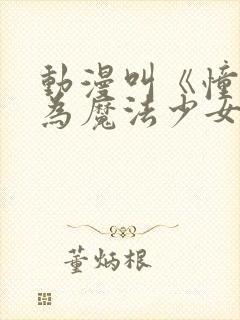 動漫叫《憧
為魔法少女
董炳根